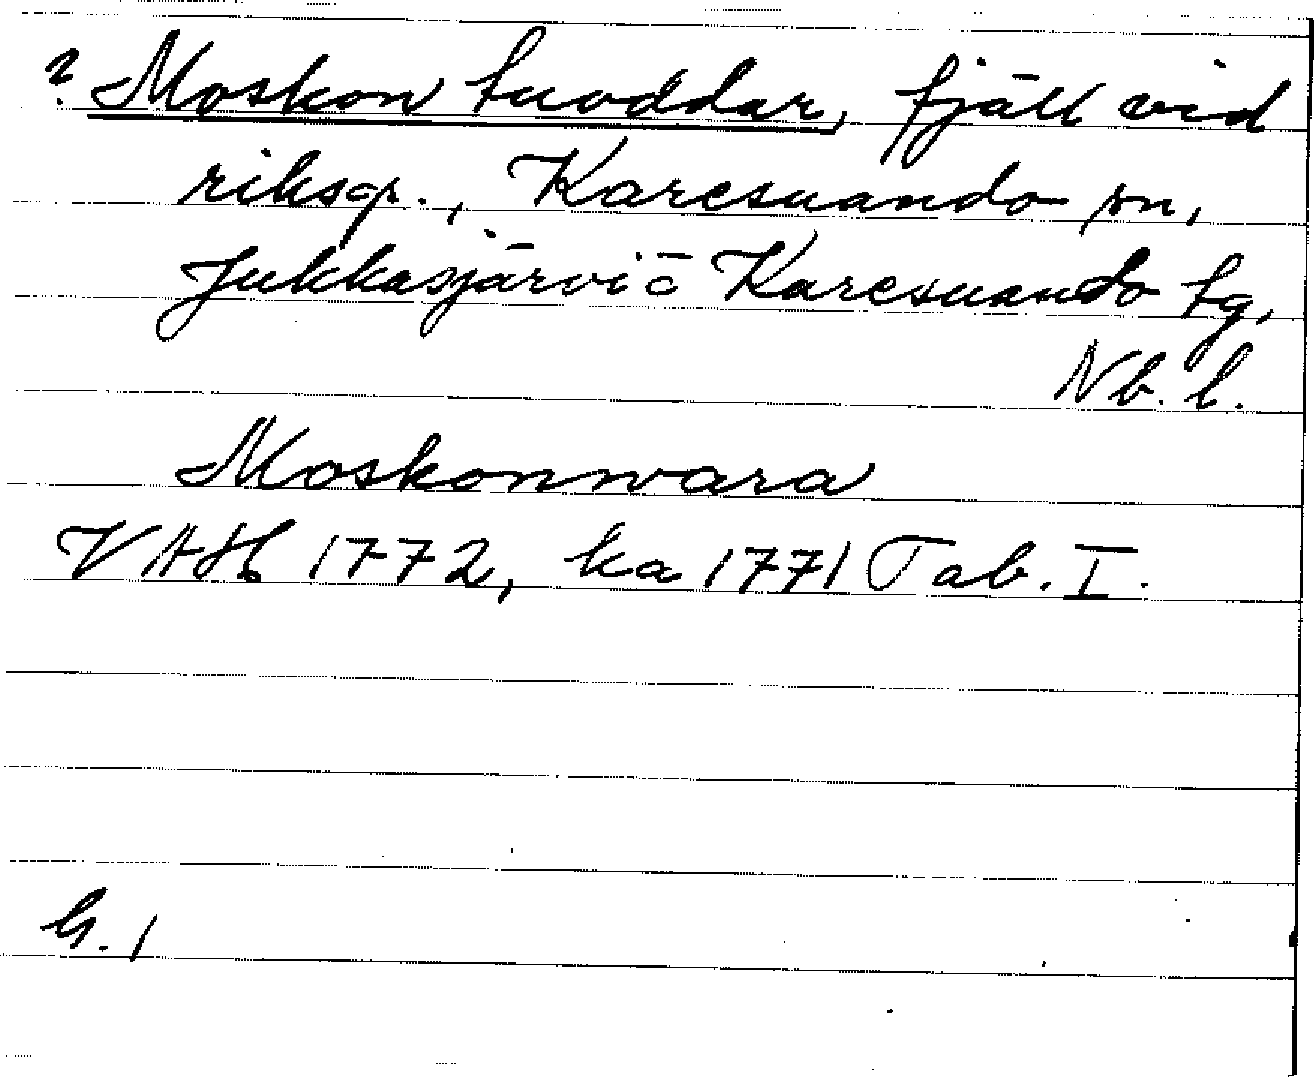 ? Moskon tuoddar, fjäll vid
riksgr., Karesuando sn,
Jukkasjärvi o Karesuando tg,
Nb. l.
Moskonwara
VAH 1772, ka 1771 Tab. I.
G. 1